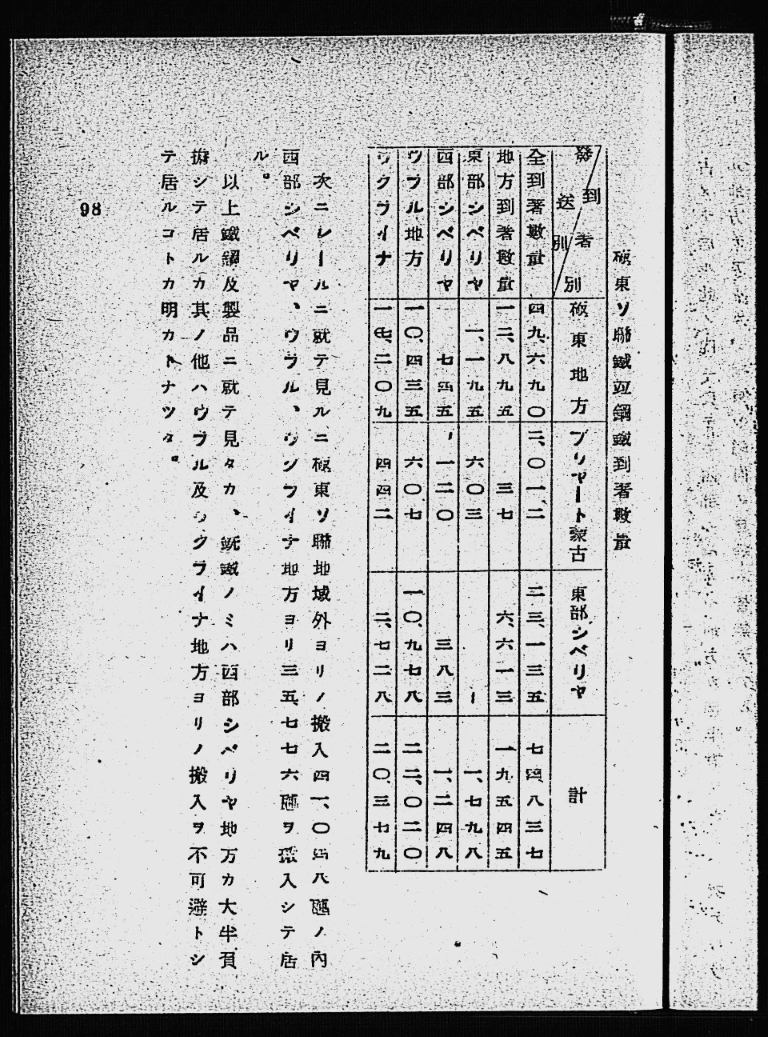 極東ソ聯鐵道鋼鐵到著數量
發送別/到著別　極東地方　ブリヤート蒙古　東部シベリヤ　計
全到著數量　四九、六九〇　二、〇一、二　二三、一三五　七四八三七
地方到著數量　一二、八九五　三七　六、六一三　一九五四五
東部シベリヤ　一、一九五　六〇三　ー　一、七九八
西部シベリヤ　七四五　一二〇　三八三　一、二四八
ウラル地方　一〇、四三五　六〇七　一〇、九七八　二二、〇二〇
ウクライナ　一七、二〇九　四四二　二、七二八　二〇、三七九
次ニレールニ就テ見ルニ極東ソ聯地域外ヨリノ搬入四一、〇四八瓲ノ內
西部シベリヤ、ウラル、ウクライナ地方ヨリ三五、七七六瓲ヲ搬入シテ居
ル。
以上鐵鋼及製品ニ就テ見タカ、銑鐵ノミハ西部シベリヤ地方カ大半ヲ負
擔シテ居ルカ其ノ他ハウラル及ウクライナ地方ヨリノ搬入ヲ不可避トシ
テ居ルコトカ明カトナツタ。
98